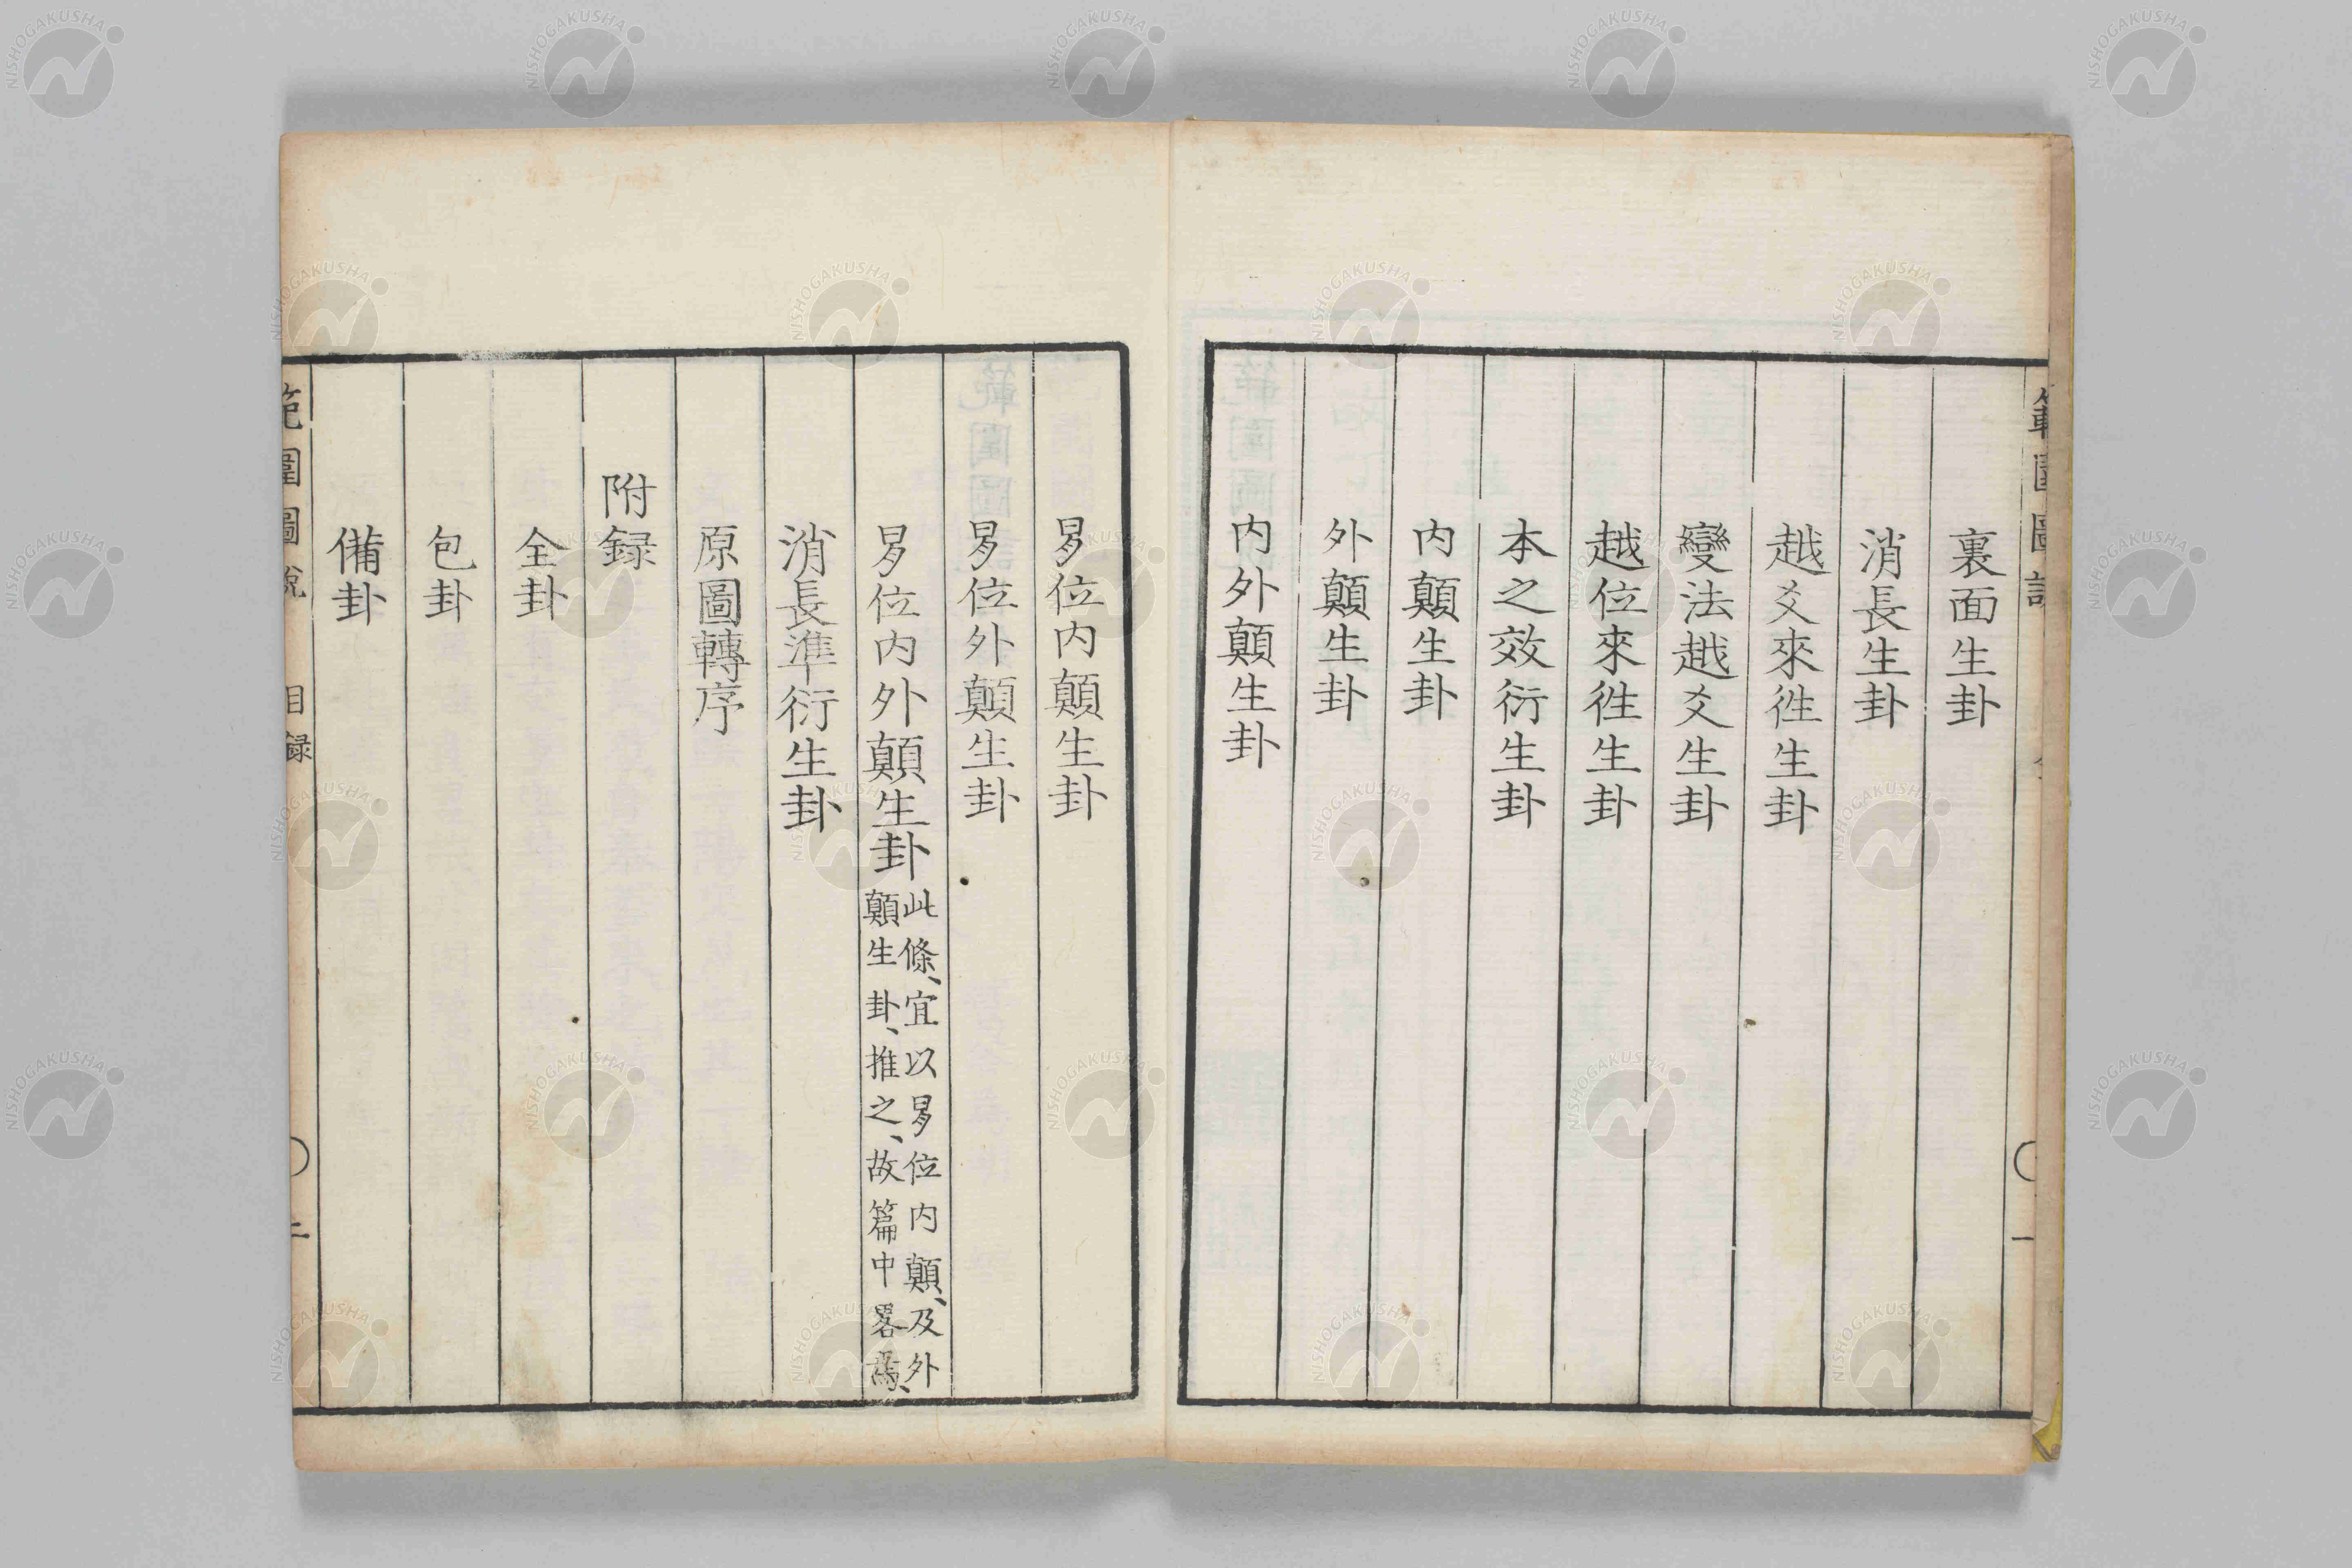 裏面生卦
消長生卦
越爻來徃生卦
變法越爻生卦
越位來徃生卦
本之效衍生卦
内顛生卦
外顛生卦
内外顛生卦
易位内顛生卦
易位外顛生卦
易位内外顛生卦
此條、宜以易位内顛、及外
顛生卦、推之、故篇中畧焉、
消長準衍生卦
原圖轉序
附録
全卦
包卦
備卦
範圍圖說 目録 二
NISHOGAKUSHA